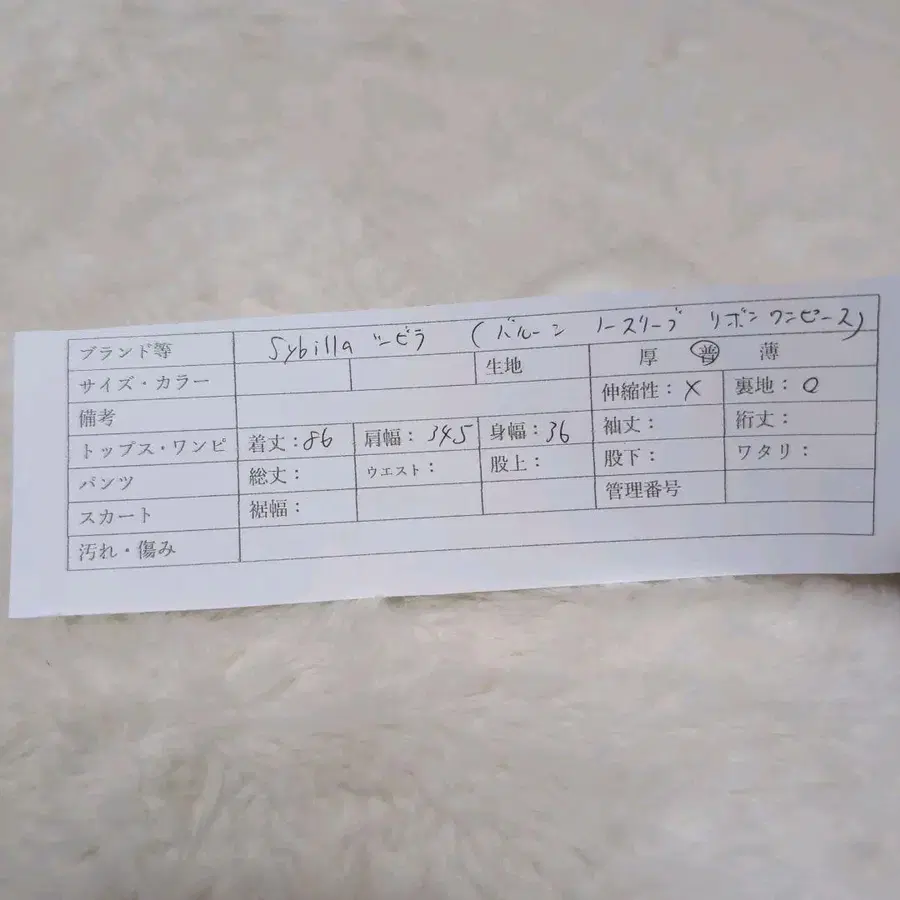 ブランド等 Sybilla シビラ (バルーン ノースリーブ リボン ワンピース)
サイズ・カラー 生地 厚 普 薄
備考 伸縮性：X 裏地：O
トップス・ワンピ 着丈：86 肩幅：34.5 身幅：36 袖丈： 裄丈：
パンツ 総丈： ウエスト： 股上： 股下： ワタリ：
スカート 裾幅： 管理番号
汚れ・傷み